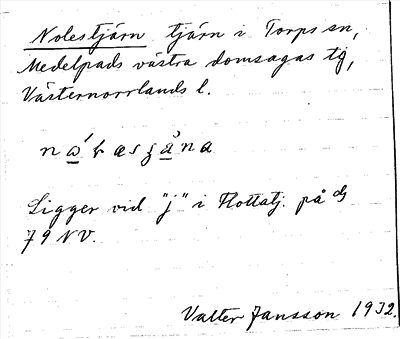 Nolestjärn tjärn i Torps sn,
Medelpads västra domsagas tg,
Västernorrlands l.
Ligger vid "j" i Flottatj. på
79 NV.
Valter Jansson 1932.